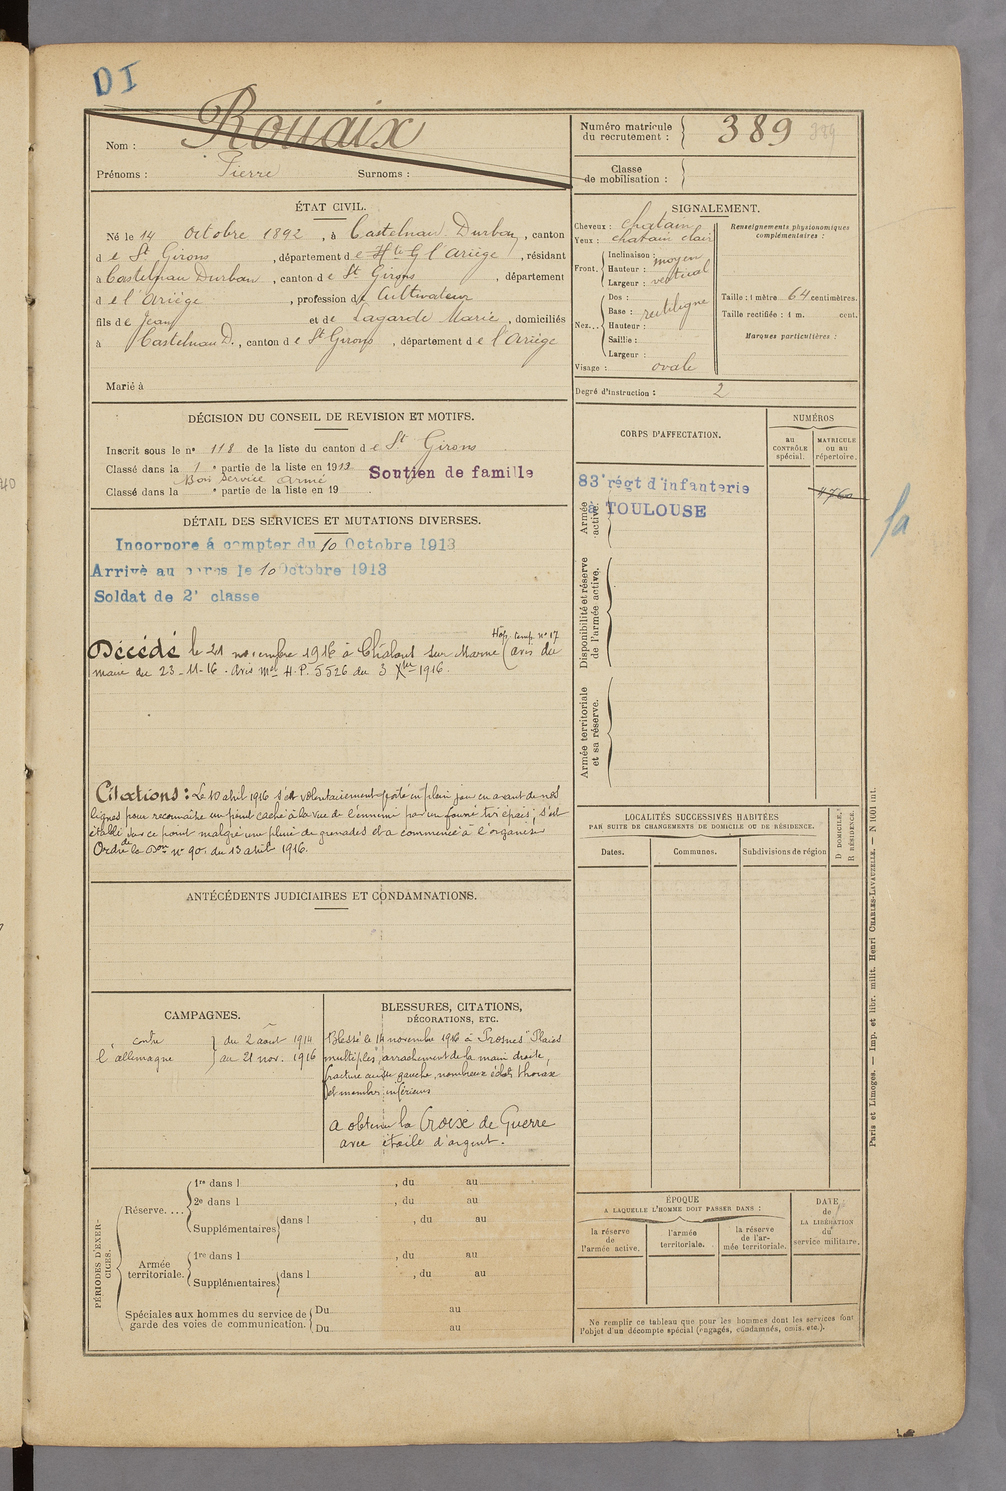 DI
Nom : Rouaix
Prénoms : Pierre Surnoms :
Numéro matricule du recrutement : 389 389
Classe de mobilisation :
ÉTAT CIVIL.
Né le 14 Octobre 1892, à Castelnau Durban, canton
d e St Girons, département d e Hte G l'Ariège, résidant
à Castelnau Durban, canton d e St Girons, département
d e l'Ariège, profession de Cultivateur
fils de Jean et de Lagarde Marie, domiciliés
à Castelnau D., canton d e St Girons, département d e l'Ariège
Marié à
SIGNALEMENT.
Cheveux : chatain
Yeux : chatain clair
Front. Inclinaison : moyen
Hauteur : vertical
Largeur :
Nez... Dos :
Base : rectiligne
Hauteur :
Saillie :
Largeur :
Visage : ovale
Renseignements physionomiques complémentaires :
Taille : 1 mètre 64 centimètres.
Taille rectifiée : 1 m. cent.
Marques particulières :
Degré d'instruction : 2
DÉCISION DU CONSEIL DE REVISION ET MOTIFS.
Inscrit sous le n° 118 de la liste du canton d e St Girons
Classé dans la 1 e partie de la liste en 1913 Soutien de famille
Bon Service armé
Classé dans la e partie de la liste en 19
CORPS D'AFFECTATION.
NUMÉROS
au CONTRÔLE spécial.
MATRICULE ou au répertoire.
83e régt d'infanterie
à TOULOUSE
Armée active.
Disponibilité et réserve de l'armée active.
Armée territoriale et sa réserve.
DÉTAIL DES SERVICES ET MUTATIONS DIVERSES.
Incorporé à compter du 10 Octobre 1913
Arrivé au corps le 10 Octobre 1913
Soldat de 2e classe
Hôp. temp. n° 17
Décédé le 21 novembre 1916 à Châlons sur Marne (avis du
maire du 23-11-16. Avis Mel H.P. 5526 du 3 Xbre 1916.
Citations : Le 10 avril 1916 s'est volontairement porté en plein jour en avant de nos
lignes pour reconnaître un point caché à la vue de l'ennemi par un fourré très épais, s'est
établi dans ce point malgré une pluie de grenades et a commencé à l'organiser
Ordre de la Don n° 90. du 13 avril 1916.
LOCALITÉS SUCCESSIVES HABITÉES
PAR SUITE DE CHANGEMENTS DE DOMICILE OU DE RÉSIDENCE.
Dates. Communes. Subdivisions de région
D DOMICILE, R RÉSIDENCE.
ANTÉCÉDENTS JUDICIAIRES ET CONDAMNATIONS.
CAMPAGNES.
contre l'allemagne
du 2 août 1914
au 21 nov. 1916
BLESSURES, CITATIONS,
DÉCORATIONS, ETC.
Blessé le 14 novembre 1916 à Prosnes "Plaies
multiples, arrachement de la main droite,
fracture cuisse gauche, nombreux éclats thorax
et membres inférieurs
a obtenu la Croix de Guerre
avec étoile d'argent.
PÉRIODES D'EXERCICES.
Réserve....
1re dans l , du au
2e dans l , du au
Supplémentaires dans l , du au
Armée territoriale.
1re dans l , du au
Supplémentaires dans l , du au
Spéciales aux hommes du service de garde des voies de communication.
Du au
Du au
ÉPOQUE
A LAQUELLE L'HOMME DOIT PASSER DANS :
la réserve de l'armée active.
l'armée territoriale.
la réserve de l'armée territoriale.
DATE de LA LIBÉRATION du service militaire.
Ne remplir ce tableau que pour les hommes dont les services font
l'objet d'un décompte spécial (engagés, condamnés, omis, etc.).
Paris et Limoges. — Imp. et libr. milit. Henri CHARLES-LAVAUZELLE. — N 1601 int.